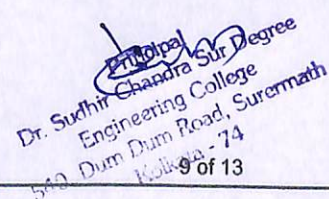 Principal
Dr. Sudhir Chandra Sur Degree
Engineering College
540, Dum Dum Road, Surermath
Kolkata - 74
9 of 13